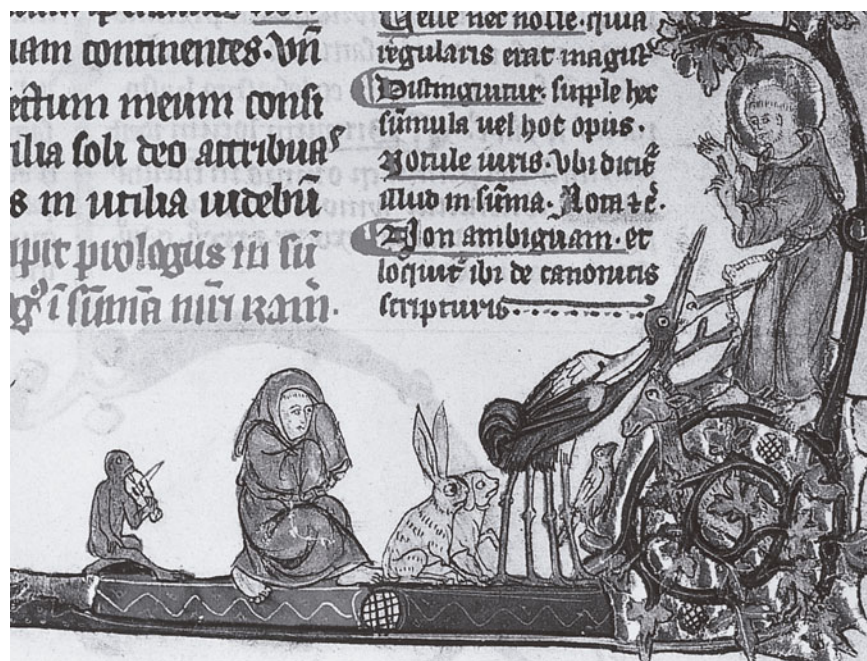 uam continentes. Vn̄
ectum meum consi
ilia soli deo attribuas
s in utilia uidebū
ipit prologus in sū
Velle nec nolle. quia
regularis erat magist̄
Distinguitur. supple hec
sūmula uel hoc opus.
Notule iuris. Vbi dicit̄
illud in sūma. Nota
Non ambiguam. et
loquit̄ ibi de canonicis
scripturis